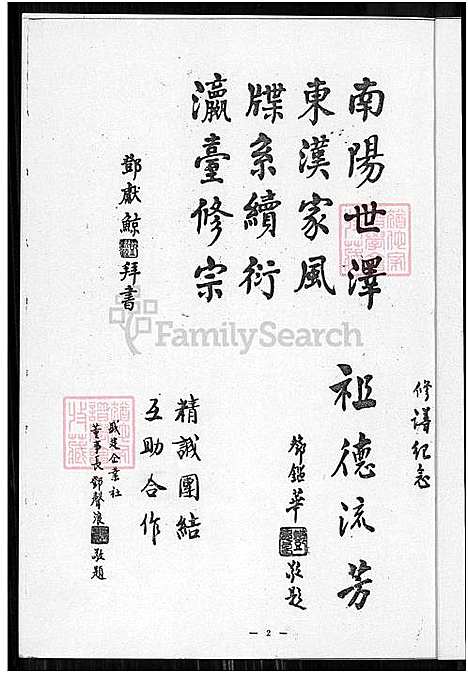 南陽世澤
東漢家風
牒系續衍
瀛臺修宗
鄧獻鯨
拜書
修譜紀念
祖德流芳
鄧鎰華
敬題
精誠團結
互助合作
盛建企業社
董事長鄧聲浪
敬題
FamilySearch
— 2 —